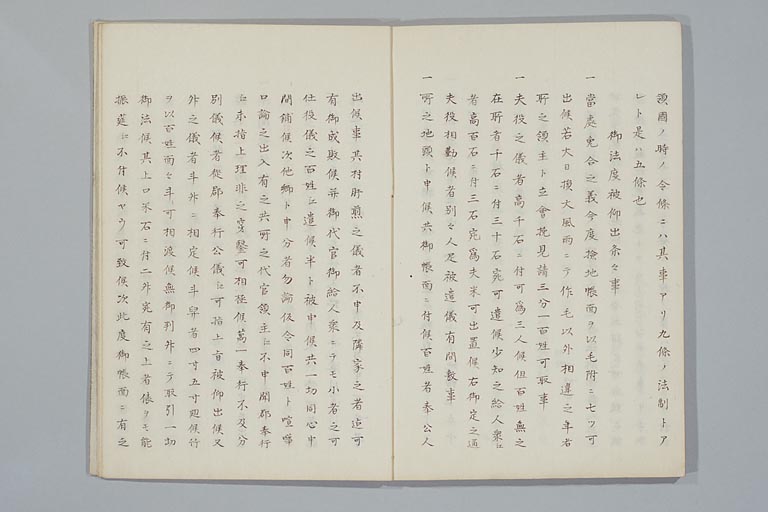 領國ノ時ノ令條ニハ其事アリ九條ノ法制トア
レト是ハ五條也
御法度被仰出条々事
一當處免合之義今度撿地帳面ヲ以毛附ニ七ツ可
出候若大日損大風雨ニテ作毛以外相違之年者
所之領主ト立會撿見請三分一百姓可取事
一夫役之儀者高千石ニ付可為三人候但百姓無之
在所者千石ニ付三十石宛可遣候少知之給人衆ニ
者高百石ニ付三石宛為夫米可出置候右御定之通
夫役相勤候者別々人足被遣儀有間敷事
一所之地頭ト申候共御帳面ニ付候百姓者奉公人
出候事其村肝煎之儀者不申及隣家之者迄可
有御成敗候并御代官御給人衆ニテモ小者之可
仕役儀之百姓ニ遣候半ト被申候共一切同心申
間鋪候次他郷ト申分者勿論仮令同百姓ト喧嘩
口論之出入有之共所之代官領主ニ不申聞郡奉行
ニ本指上理非之穿鑿可相極候萬一奉行不及分
別儀候者従郡奉行公儀ニ可指上旨被仰出候又
升之儀者斗升ニ相定候斗舁者四寸五寸廻候竹
ヲ以百姓面々斗可相渡候無御判升ニテ取引一切
御法候其上口米石ニ付二升宛有之上者俵ヲモ能
振莚ニ不付候ヤウ可致候次此度御帳面ニ有之